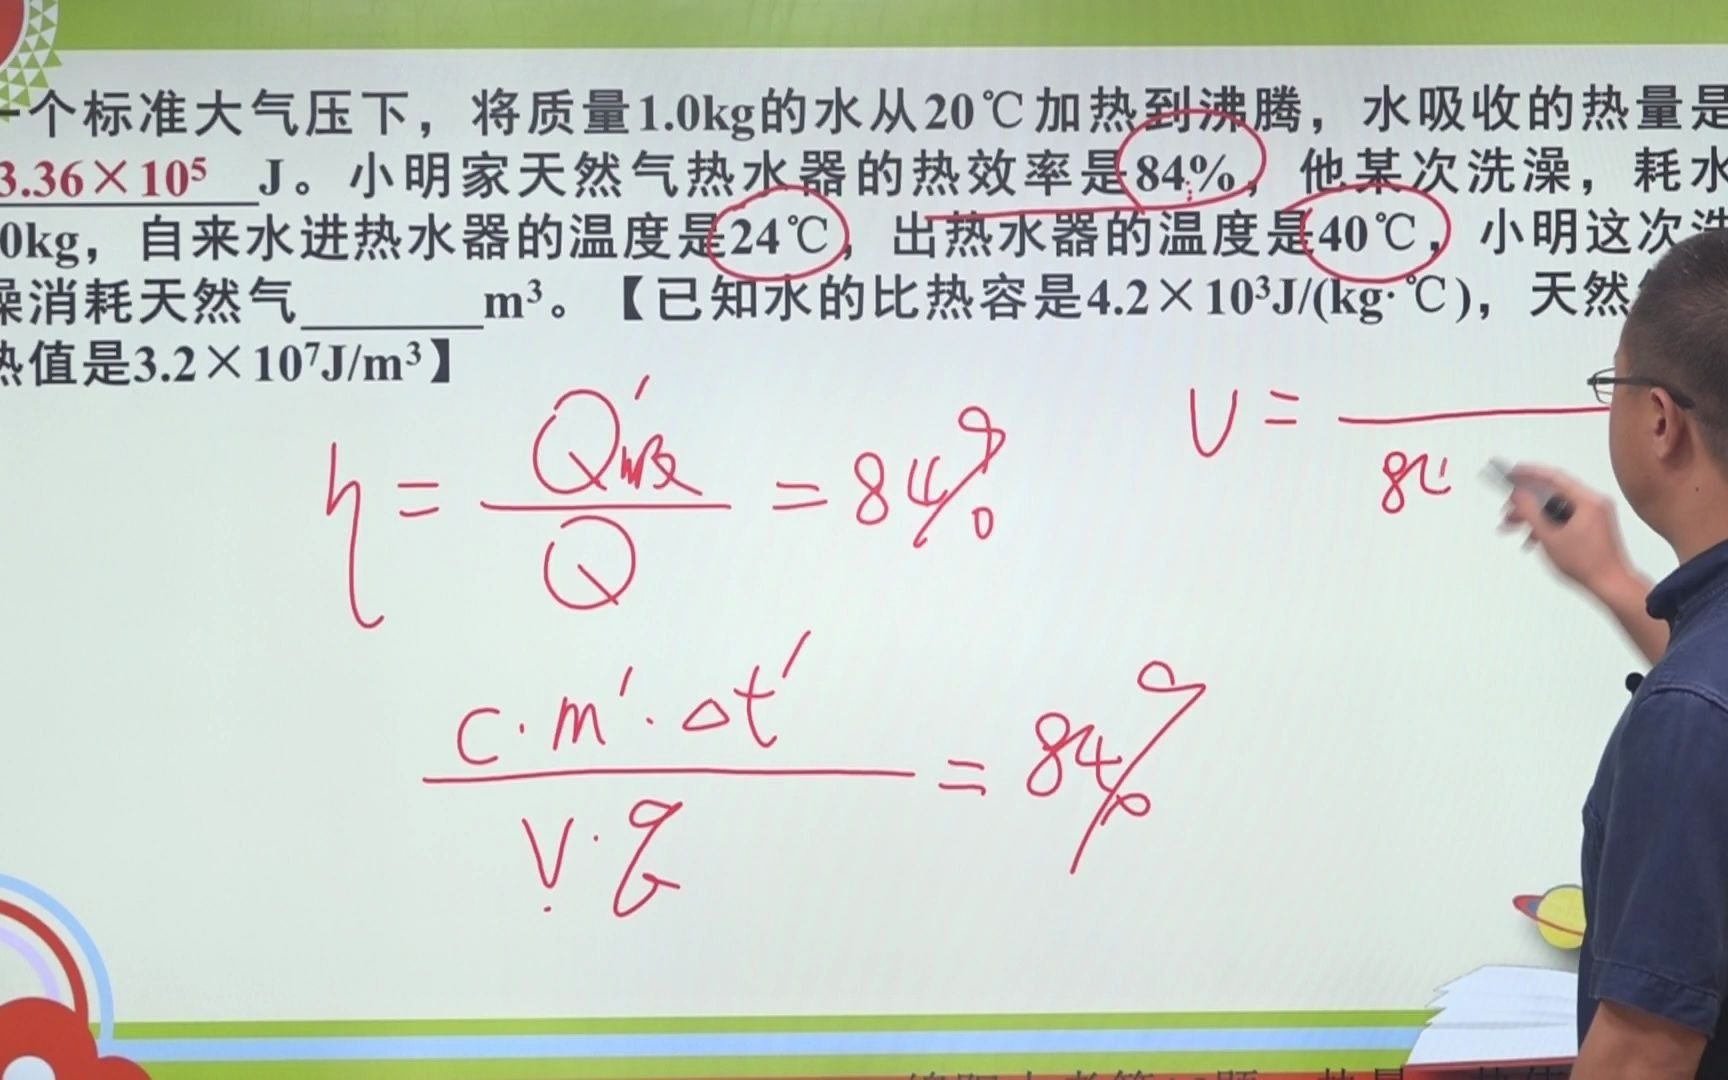 一个标准大气压下，将质量1.0kg的水从20℃加热到沸腾，水吸收的热量是
3.36×10⁵ J。小明家天然气热水器的热效率是84%，他某次洗澡，耗水
0kg，自来水进热水器的温度是24℃，出热水器的温度是40℃，小明这次洗
澡消耗天然气______m³。【已知水的比热容是4.2×10³J/(kg·℃)，天然
热值是3.2×10⁷J/m³】
η = Q′吸 / Q = 84%
V = 84
c·m′·Δt′ / V·q = 84%